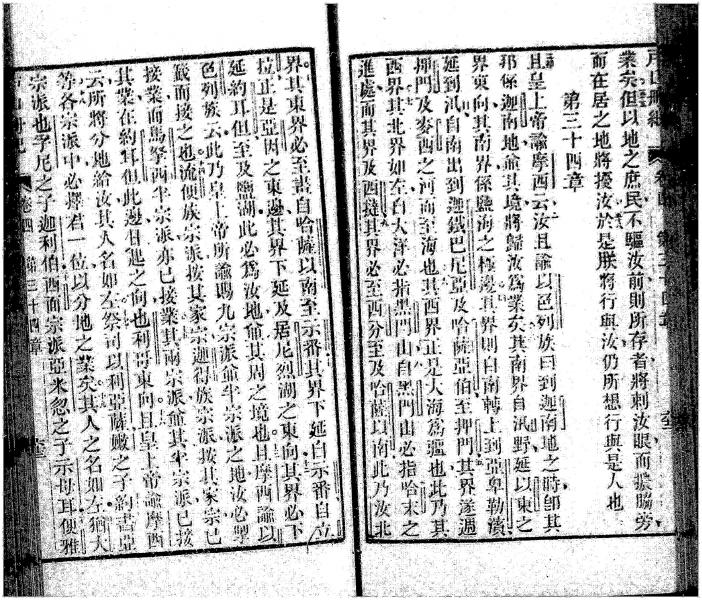 業矣但以地之庶民不驅汝前則所存者將刺汝眼而擾脇旁
而在居之地將擾汝於是朕將行與汝仍所想行與是人也
第三十四章
且皇上帝諭摩西云汝且諭以色列族曰到迦南地之時卽其
邦係迦南地爺其境將歸汝為業矣其南界自汛野延以東之
界東向其南界係鹽海之極邊其界則自南轉上到亞卑勒濱
延到汛自南出到迦鐵巴尼亞及哈薩亞伯至押門其界遂週
押門及麥西之河而至海也其西界正是大海為疆也此乃其
西界其北界如左自大洋必指黑門山自黑門山必指哈末之
進處而其界及西撻其界必至西分至及哈薩以南此乃汝北
界其東界必至畫自哈薩以南至示番其界下延自示番自立
拉正是亞因之東邊其界下延及居尼烈湖之東向其界必下
延約耳但至及鹽湖此必為汝地爺其周之境也且摩西諭以
色列族云此乃皇上帝所諭賜九宗派爺半宗派之地汝必掣
籤而接之也流便族宗派按其家宗迦得族宗派按其家宗已
接業而馬拏西半宗派亦已接業其兩宗派爺其半宗派已接
其業在約耳但此邊日起之向也利哥東向且皇上帝諭摩西
云所將分地給汝其人名如左祭司以利亞薩嫩之子約書亞
等各宗派中必擇君一位以分地之業矣其人之名如左猶大
宗派也孚尼之子迦利伯西面宗派亞米忽之子示母耳便雅
卷四 第三十四章